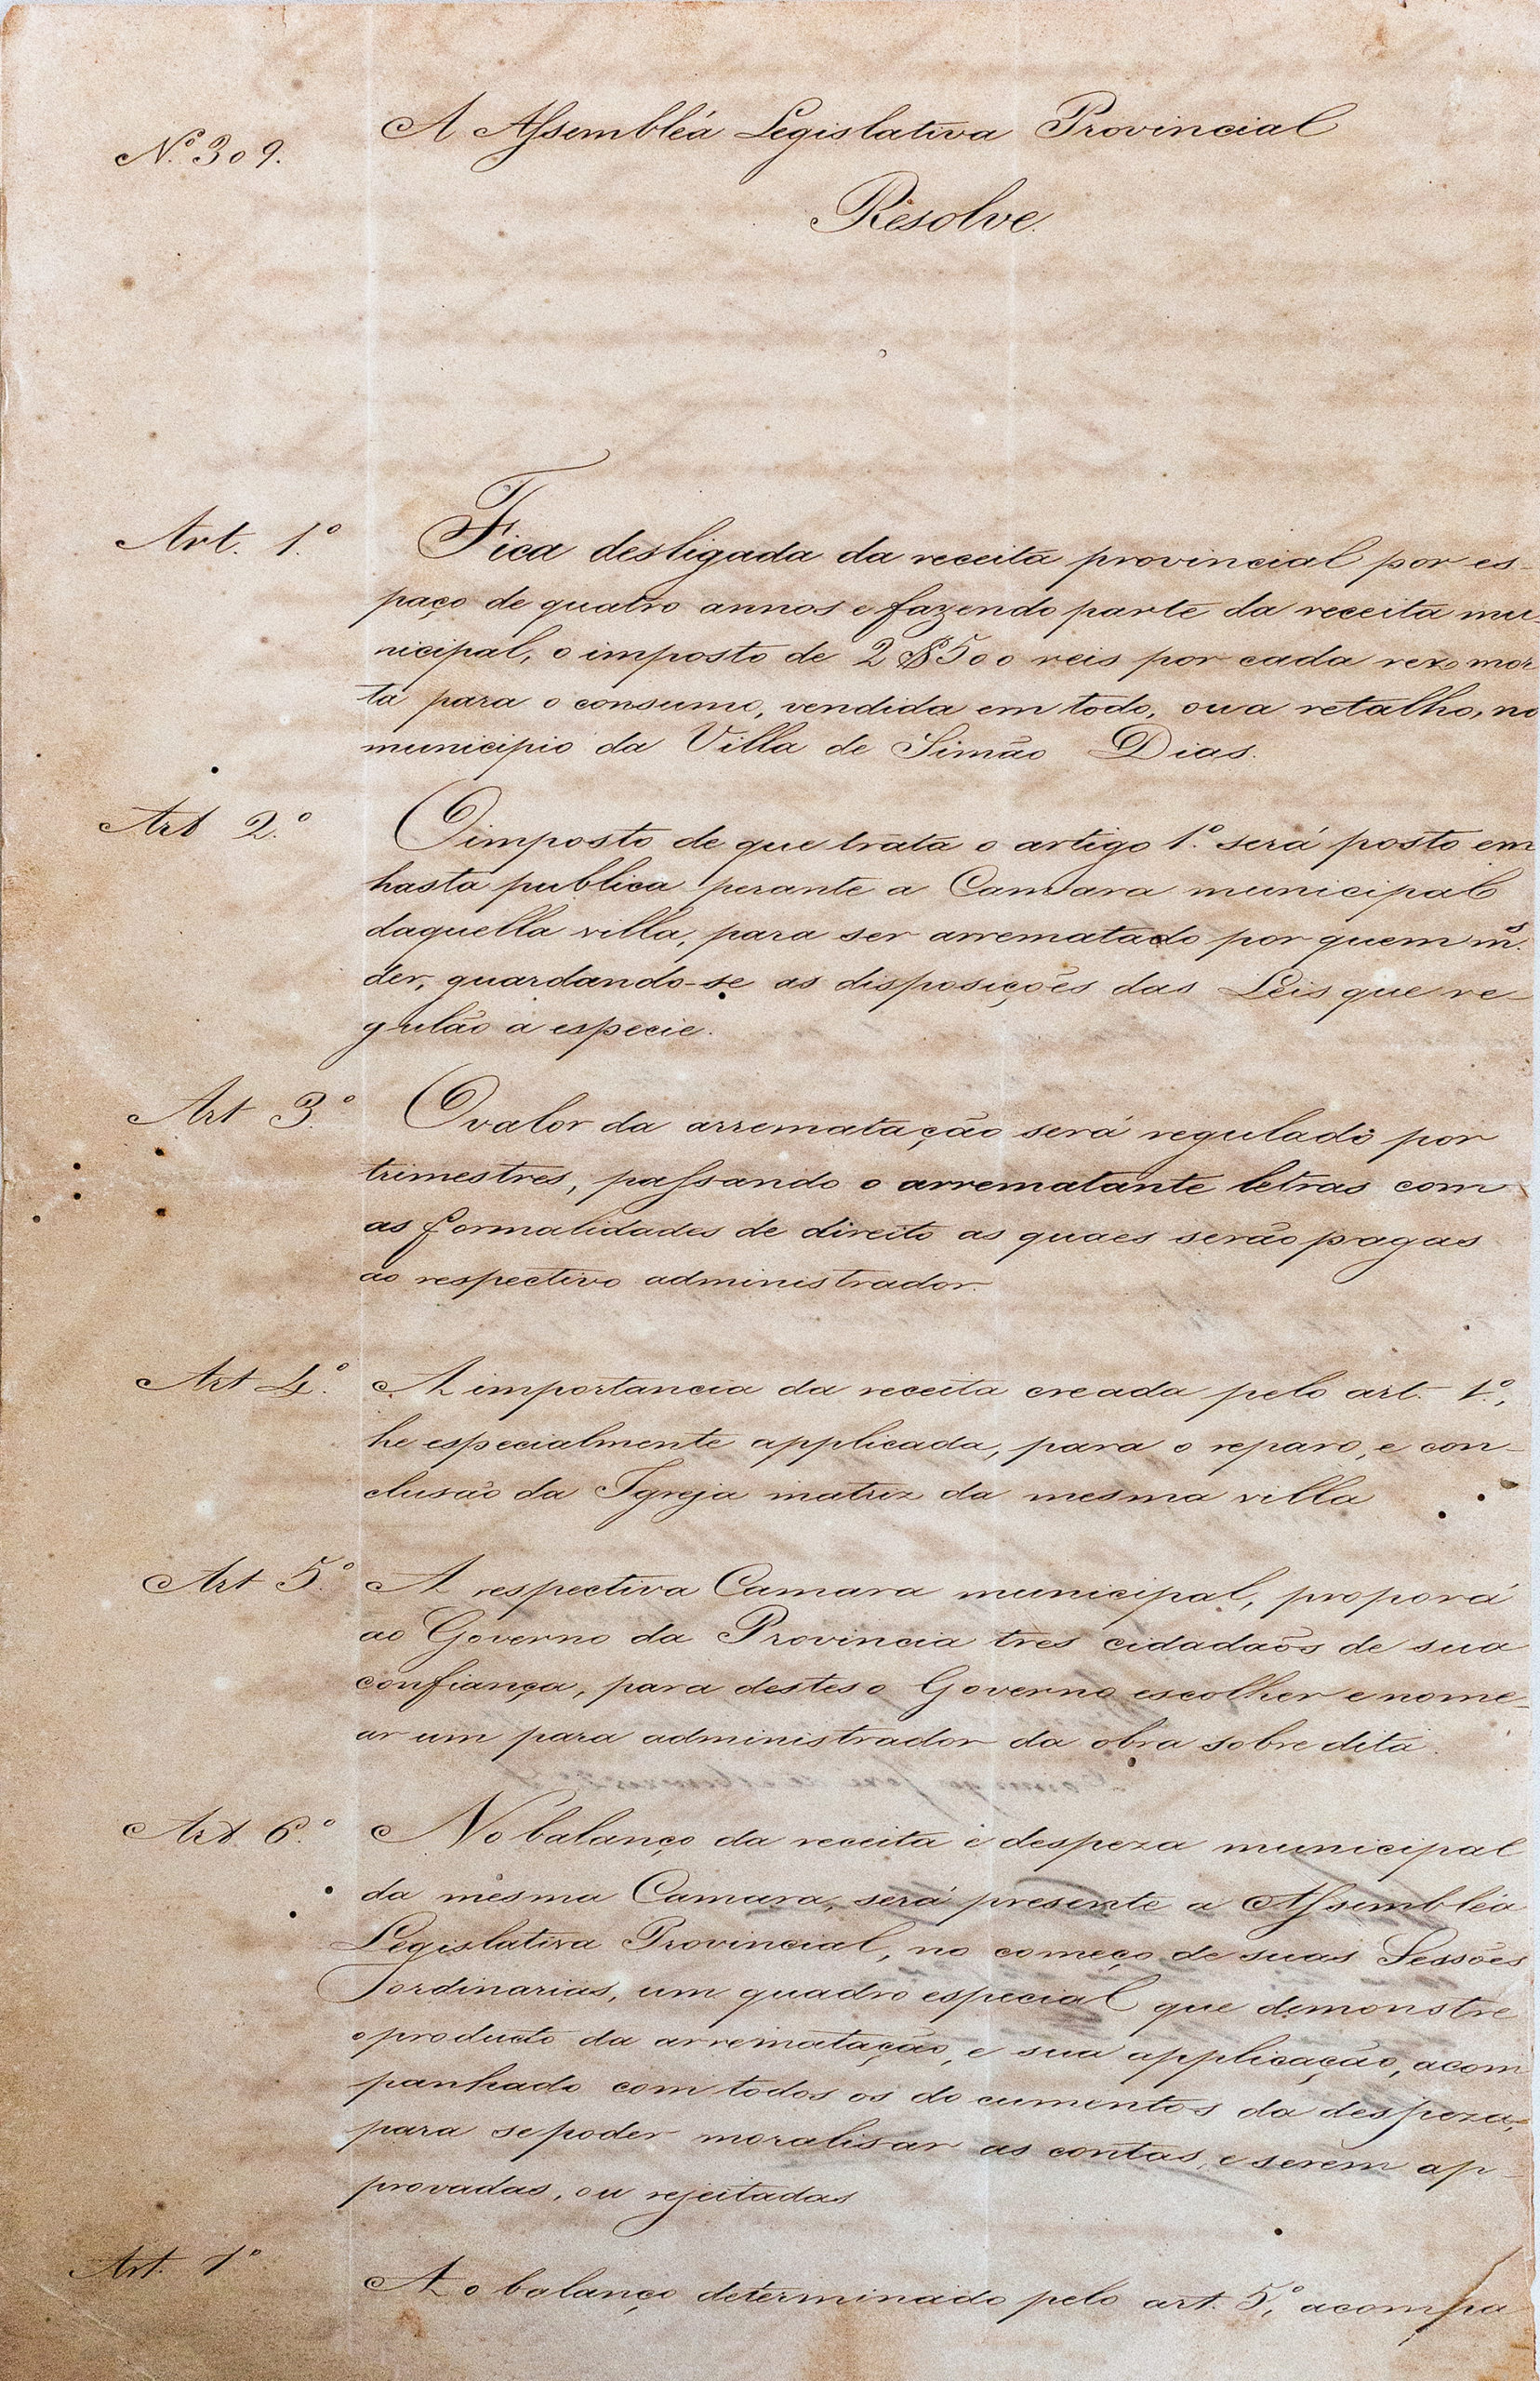 A Assembléa Legislativa Provincial
Nº. 309.
Resolve.
Art. 1.º Fica desligada da receita provincial por es-
paço de quatro annos e fazendo parte da receita mu-
nicipal, o imposto de 2$500 reis por cada rez mor
ta para o consumo, vendida em todo, ou a retalho, no
municipio da Villa de Simão Dias.
Art 2.º O imposto de que trata o artigo 1.º será posto em
hasta publica perante a Camara municipal
daquella villa, para ser arrematado por quem m.s
der, guardando-se as disposições das Leis que re-
gulão a especie.
Art 3.º O valor da arrematação será regulado por
trimestres, passando o arrematante letras com
as formalidades de direito as quaes serão pagas
ao respectivo administrador.
Art 4.º A importancia da receita creada pelo art. 1.º,
he especialmente applicada, para o reparo, e con-
clusão da Igreja matriz da mesma villa
Art 5.º A respectiva Camara municipal, proporá
ao Governo da Provincia tres cidadãos de sua
confiança, para destes o Governo escolher e nome-
ar um para administrador da obra sobre dita.
Art 6.º No balanço da receita e despeza municipal
da mesma Camara, será presente a Assembléa
Legislativa Provincial, no começo de suas Sessões
ordinarias, um quadro especial que demonstre
o producto da arrematação, e sua applicação, acom
panhado com todos os documentos da despeza,
para se poder moralisar as contas, e serem ap-
provadas, ou rejeitadas
Art. 7º Ao balanço determinado pelo art. 5.º, acompa